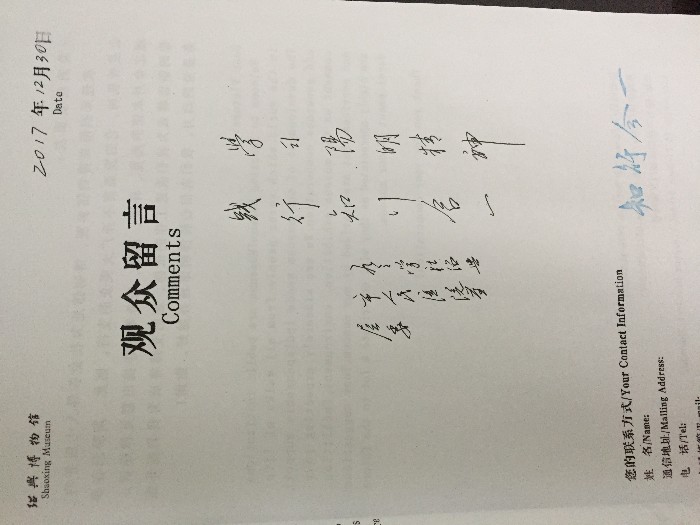 绍兴博物馆
Shaoxing Museum
2017年12月30日
Date
观众留言
Comments
学习阳明精神
践行知行合一
九三学社绍兴
市人民法院
您的联系方式/Your Contact Information
姓 名/Name:
通信地址/Mailing Address:
电 话/Tel:
知行合一